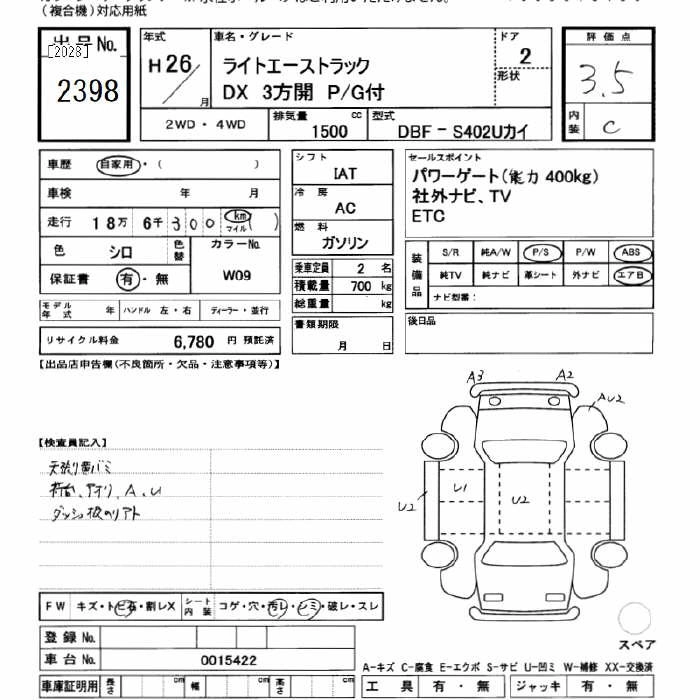 （複合機）対応用紙
出品No.
[2028]
2398
年式
H26/
月
車名・グレード
ライトエーストラック
DX 3方開 P/G付
ドア
2
形状
2WD・4WD
排気量
1500
cc
型式
DBF－S402Uカイ
評価点
3.5
内装
C
車歴
自家用・（ ）
車検
年 月
走行
18万 6千 300 km マイル ( )
色
シロ
色替
カラーNo.
W09
保証書
有・無
モデル年式
年
ハンドル 左・右
ディーラー・並行
リサイクル料金
6,780 円 預託済
シフト
IAT
冷房
AC
燃料
ガソリン
乗車定員 2 名
積載量 700 kg
総重量 kg
書類期限
月 日
セールスポイント
パワーゲート(能力 400kg)
社外ナビ、TV
ETC
装備品
S/R 純A/W P/S P/W ABS
純TV 純ナビ 革シート 外ナビ エアB
ナビ型番：
後日品
【出品店申告欄(不良箇所・欠品・注意事項等)】
【検査員記入】
荷台、アオリ、A、U
A3
A2
AU2
U2
U1
U2
FW
キズ・トビ石・割レX
シート内装
コゲ・穴・汚レ・シミ・破レ・スレ
登録No.
車台No.
0015422
車庫証明用
長さ cm
幅 cm
高さ cm
スペア
A-キズ C-腐食 E-エクボ S-サビ U-凹ミ W-補修 XX-交換済
工具 有・無
ジャッキ 有・無